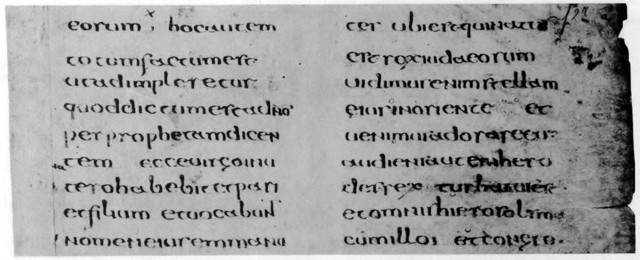 eorum, hocautem
totumfactumest
utadimpleretur
quoddictumestadno
perprophetamdicen
tem ecceuirgoinu
terohabebitetpari
etfilium etuocabun
nomeneiusemmanu
ter ubiestquinatus
estrexiudaeorum
uidimusenimstellam
eiusinoriente et
uenimusadorareeum
audiensautemhero
desrex turbatusest
etomnishierosolima
cumillo; etcongre